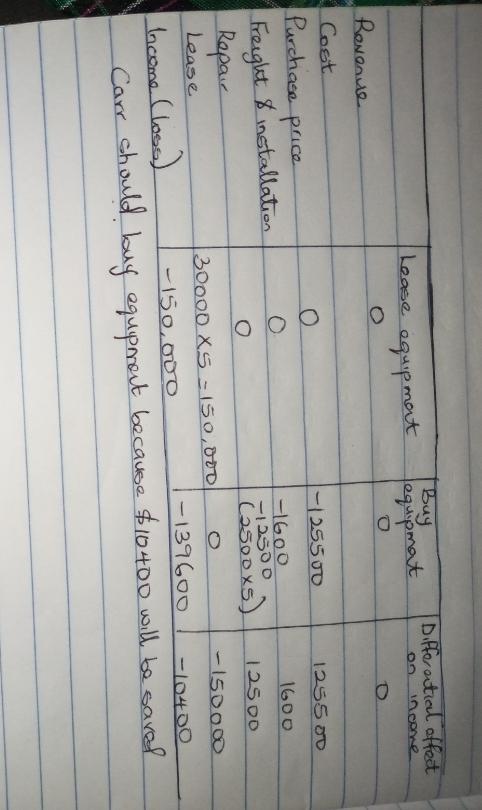 Lease equipment Buy equipment Differential effect on income
Revenue 0 0 0
Cost
Purchase price 0 -125500 125500
Freight & installation 0 -1600 1600
Repair 0 -12500 (2500x5) 12500
Lease 30000 x 5 = 150,000 0 -150000
Income (loss) -150,000 -139600 -10400
Carr should buy equipment because $10400 will be saved